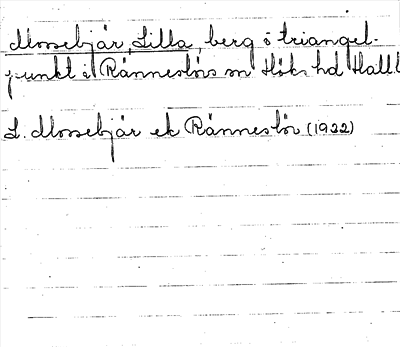 Mossebjär, Lilla, berg o triangel-
punkt i Ränneslövs sn Höks hd Hall.
L. Mossebjär ek Ränneslöv (1922)